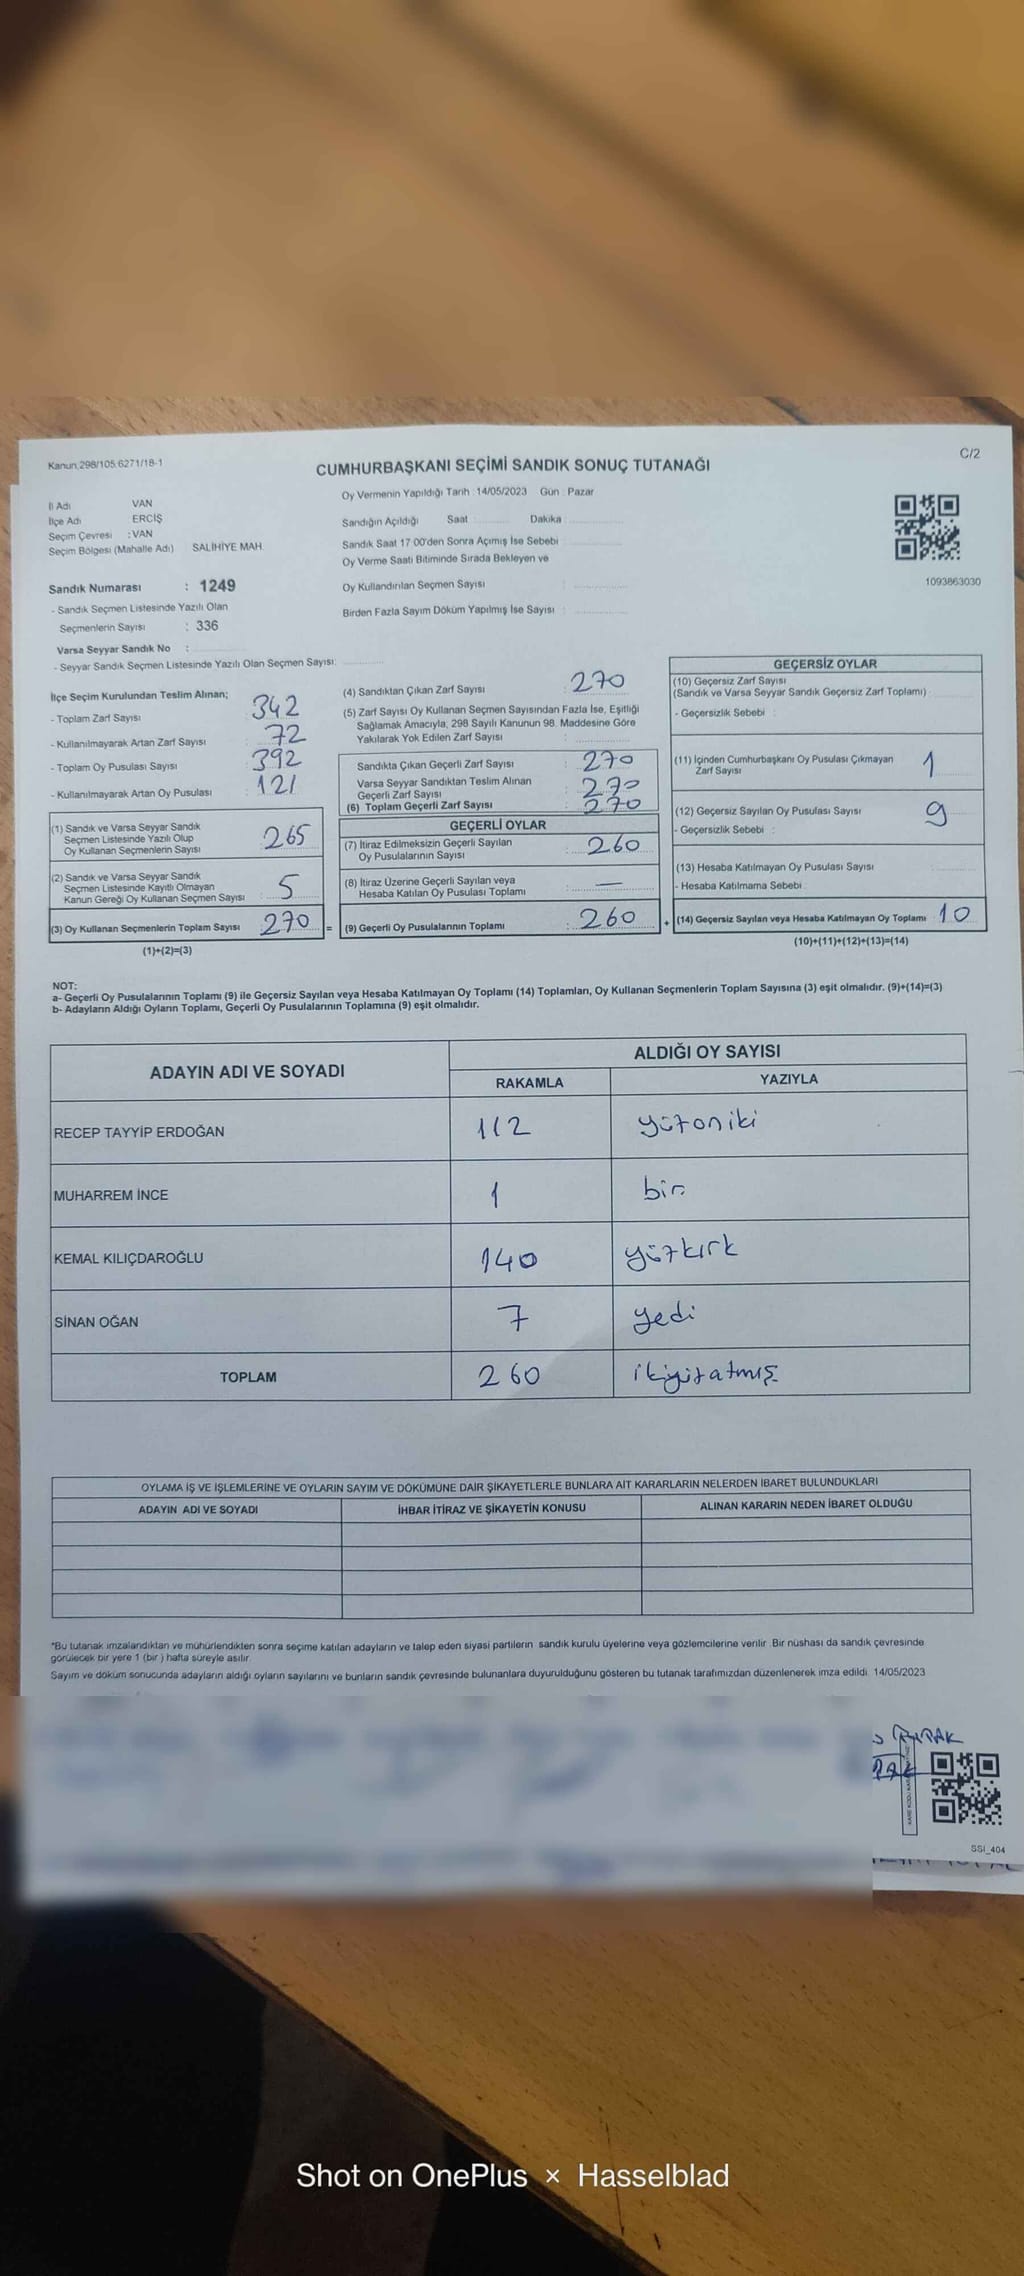 Kanun.298/105.6271/18-1
C/2
CUMHURBAŞKANI SEÇİMİ SANDIK SONUÇ TUTANAĞI
Oy Vermenin Yapıldığı Tarih : 14/05/2023 Gün : Pazar
İl Adı VAN
İlçe Adı ERCİŞ
Seçim Çevresi : VAN
Seçim Bölgesi (Mahalle Adı) SALİHİYE MAH.
Sandığın Açıldığı Saat Dakika
Sandık Saat 17:00'den Sonra Açımış İse Sebebi
Oy Verme Saati Bitiminde Sırada Bekleyen ve
Oy Kullandırılan Seçmen Sayısı :
Birden Fazla Sayım Döküm Yapılmış İse Sayısı :
1093863030
Sandık Numarası : 1249
- Sandık Seçmen Listesinde Yazılı Olan
Seçmenlerin Sayısı : 336
Varsa Seyyar Sandık No :
- Seyyar Sandık Seçmen Listesinde Yazılı Olan Seçmen Sayısı:
İlçe Seçim Kurulundan Teslim Alınan;
- Toplam Zarf Sayısı : 342
- Kullanılmayarak Artan Zarf Sayısı : 72
- Toplam Oy Pusulası Sayısı : 392
- Kullanılmayarak Artan Oy Pusulası : 121
(1) Sandık ve Varsa Seyyar Sandık
Seçmen Listesinde Yazılı Olup
Oy Kullanan Seçmenlerin Sayısı 265
(2) Sandık ve Varsa Seyyar Sandık
Seçmen Listesinde Kayıtlı Olmayan
Kanun Gereği Oy Kullanan Seçmen Sayısı 5
(3) Oy Kullanan Seçmenlerin Toplam Sayısı 270 =
(1)+(2)=(3)
(4) Sandıktan Çıkan Zarf Sayısı : 270
(5) Zarf Sayısı Oy Kullanan Seçmen Sayısından Fazla İse, Eşitliği
Sağlamak Amacıyla, 298 Sayılı Kanunun 98. Maddesine Göre
Yakılarak Yok Edilen Zarf Sayısı :
Sandıkta Çıkan Geçerli Zarf Sayısı : 270
Varsa Seyyar Sandıktan Teslim Alınan
Geçerli Zarf Sayısı : 270
(6) Toplam Geçerli Zarf Sayısı : 270
GEÇERLİ OYLAR
(7) İtiraz Edilmeksizin Geçerli Sayılan
Oy Pusulalarının Sayısı : 260
(8) İtiraz Üzerine Geçerli Sayılan veya
Hesaba Katılan Oy Pusulası Toplamı : —
(9) Geçerli Oy Pusulalarının Toplamı : 260 +
GEÇERSİZ OYLAR
(10) Geçersiz Zarf Sayısı
(Sandık ve Varsa Seyyar Sandık Geçersiz Zarf Toplamı) :
- Geçersizlik Sebebi :
(11) İçinden Cumhurbaşkanı Oy Pusulası Çıkmayan
Zarf Sayısı 1
(12) Geçersiz Sayılan Oy Pusulası Sayısı 9
- Geçersizlik Sebebi :
(13) Hesaba Katılmayan Oy Pusulası Sayısı
- Hesaba Katılmama Sebebi :
(14) Geçersiz Sayılan veya Hesaba Katılmayan Oy Toplamı : 10
(10)+(11)+(12)+(13)=(14)
NOT:
a- Geçerli Oy Pusulalarının Toplamı (9) ile Geçersiz Sayılan veya Hesaba Katılmayan Oy Toplamı (14) Toplamları, Oy Kullanan Seçmenlerin Toplam Sayısına (3) eşit olmalıdır. (9)+(14)=(3)
b- Adayların Aldığı Oyların Toplamı, Geçerli Oy Pusulalarının Toplamına (9) eşit olmalıdır.
ADAYIN ADI VE SOYADI ALDIĞI OY SAYISI
RAKAMLA YAZIYLA
RECEP TAYYİP ERDOĞAN 112 yüzoniki
MUHARREM İNCE 1 bir
KEMAL KILIÇDAROĞLU 140 yüzkırk
SİNAN OĞAN 7 yedi
TOPLAM 260 ikiyüzatmış
OYLAMA İŞ VE İŞLEMLERİNE VE OYLARIN SAYIM VE DÖKÜMÜNE DAİR ŞİKAYETLERLE BUNLARA AİT KARARLARIN NELERDEN İBARET BULUNDUKLARI
ADAYIN ADI VE SOYADI İHBAR İTİRAZ VE ŞİKAYETİN KONUSU ALINAN KARARIN NEDEN İBARET OLDUĞU
*Bu tutanak imzalandıktan ve mühürlendikten sonra seçime katılan adayların ve talep eden siyasi partilerin sandık kurulu üyelerine veya gözlemcilerine verilir. Bir nüshası da sandık çevresinde
görülecek bir yere 1 (bir ) hafta süreyle asılır.
Sayım ve döküm sonucunda adayların aldığı oyların sayılarını ve bunların sandık çevresinde bulunanlara duyurulduğunu gösteren bu tutanak tarafımızdan düzenlenerek imza edildi. 14/05/2023
SSI_404
Shot on OnePlus × Hasselblad